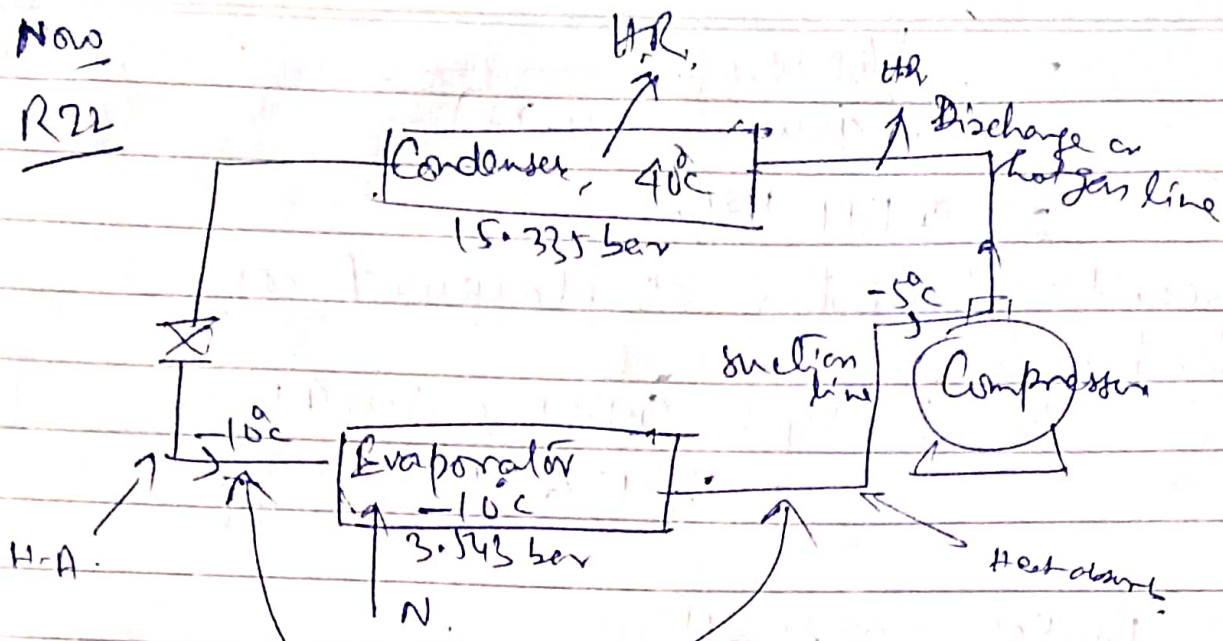 Now
R22
H.R.
HR
Discharge or
hot gas line
Condenser, 40°C
15.335 bar
-5°C
suction
line
Compressor
-10°C
Evaporator
-10°C
3.543 bar
H.A.
N
Heat absorb